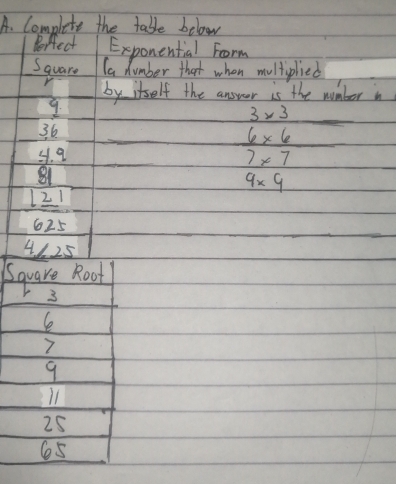 A. Complete the table below
Perfect Square
Exponential Form
(a number that when multiplied
by itself the answer is the number in
9
3 x 3
36
6 x 6
49
7 x 7
81
9 x 9
121
625
4/25
Square Root
3
6
7
9
11
25
65